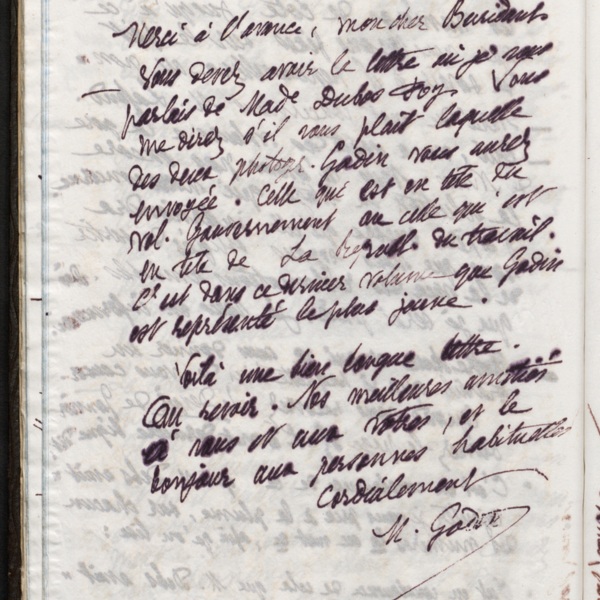 Merci à l'avance, mon cher Buridant
Vous devez avoir la lettre où je vous
parlais de Made Dubos . Vous
me direz s'il vous plait laquelle
des deux photogr. Godin vous avez
envoyée. Celle qui est en tête du
vol. Gouvernement ou celle qui est
en tête de La Républ. du travail.
C'est dans ce dernier volume que Godin
est représenté le plus jeune.
Voilà une bien longue lettre.
Au revoir. Nos meilleures amitiés
à vous et aux vôtres, et le
bonjour aux personnes habituelles
Cordialement
M. Godin